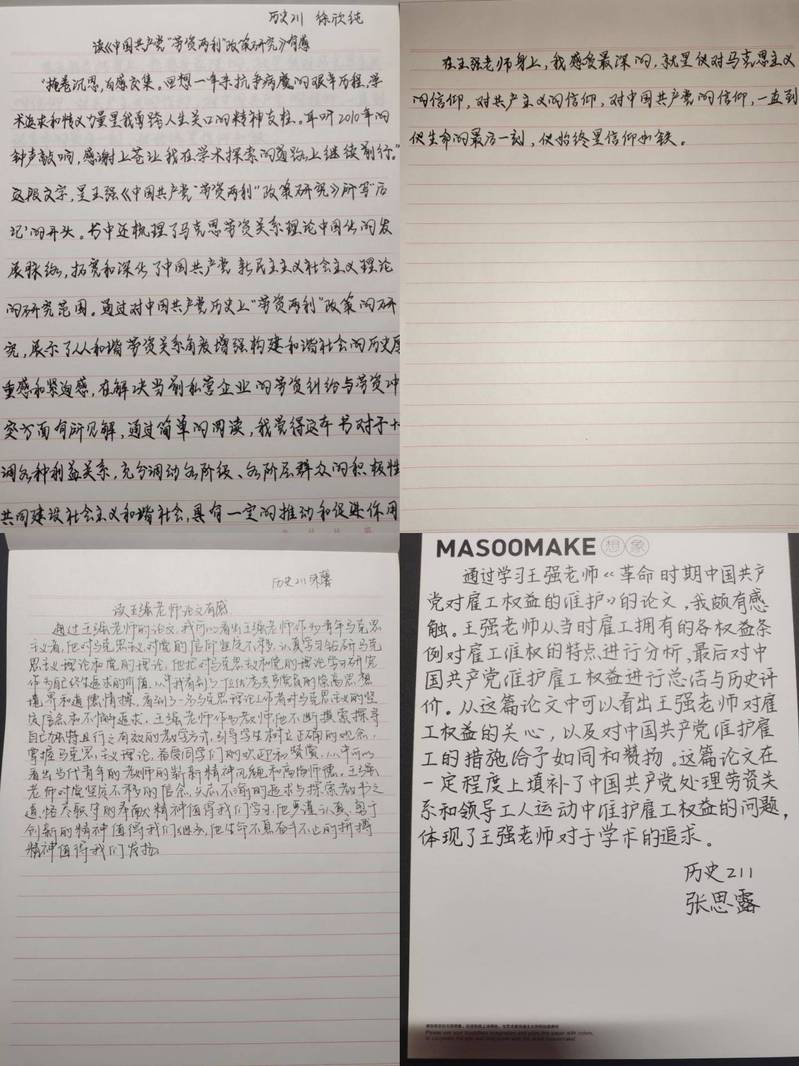 历史211 徐欣纯
读《中国共产党“劳资两利”政策研究》有感
“掩卷沉思,百感交集。回想一年来抗争病魔的艰辛历程,学
术追求和精神力量是我勇跨人生关口的精神支柱。耳听2010年的
钟声敲响,感谢上苍让我在学术探索的道路上继续前行。”
这段文字,是王强《中国共产党“劳资两利”政策研究》所写‘后
记’的开头。书中还梳理了马克思劳资关系理论中国化的发
展脉络,拓宽和深化了中国共产党新民主主义社会主义理论
的研究范围。通过对中国共产党历史上“劳资两利”政策的研
究,展示了从和谐劳资关系角度增强构建和谐社会的历史厚
重感和紧迫感,在解决当前私营企业的劳资纠纷与劳资冲
突方面有所见解,通过简单的阅读,我觉得这本书对于
调各种利益关系,充分调动各阶级、各阶层群众的积极性
共同建设社会主义和谐社会,具有一定的推动和促进作用
在王强老师身上,我感受最深的,就是他对马克思主义
的信仰,对共产主义的信仰,对中国共产党的信仰,一直到
他生命的最后一刻,他始终是信仰如铁。
历史211
读王强老师论文有感
通过王强老师的论文,我可以看出王强老师作为青年马克思
主义者,他对马克思主义对党的信仰坚定不移,认真学习钻研马克
思主义理论和党的理论,他把对马克思主义和党的理论学习研究
作为自己终生追求的价值,从中我看到了一位优秀共产党员的崇高思想
境界和道德情操,看到了一名马克思理论工作者对马克思主义的坚
定信念和不懈追求。王强老师作为教师,他不断摸索探寻
自己独特且行之有效的教学方式,引导学生树立正确的观念,
掌握马克思主义理论,备受同学们的欢迎和赞赏,从中可以
看出当代青年的教师的崭新精神风貌和高尚师德。王强
老师对党坚定不移的信念,矢志不渝的追求与探索教书之
道,恪尽职守的奉献精神值得我们学习,他严谨认真、勇于
创新的精神值得我们继承,他生命不息奋斗不止的拼搏
精神值得我们发扬。
MASOOMAKE 想象
通过学习王强老师《革命时期中国共产
党对雇工权益的维护》的论文,我颇有感
触。王强老师从当时雇工拥有的各权益条
例对雇工维权的特点进行分析,最后对中
国共产党维护雇工权益进行总结与历史评
价。从这篇论文中可以看出王强老师对雇
工权益的关心,以及对中国共产党维护雇
工的措施给予如同和赞物。这篇论文在
一定程度上填补了中国共产党处理劳资关
系和领导工人运动中维护雇工权益的问题,
体现了王强老师对于学术的追求。
历史211
张思露